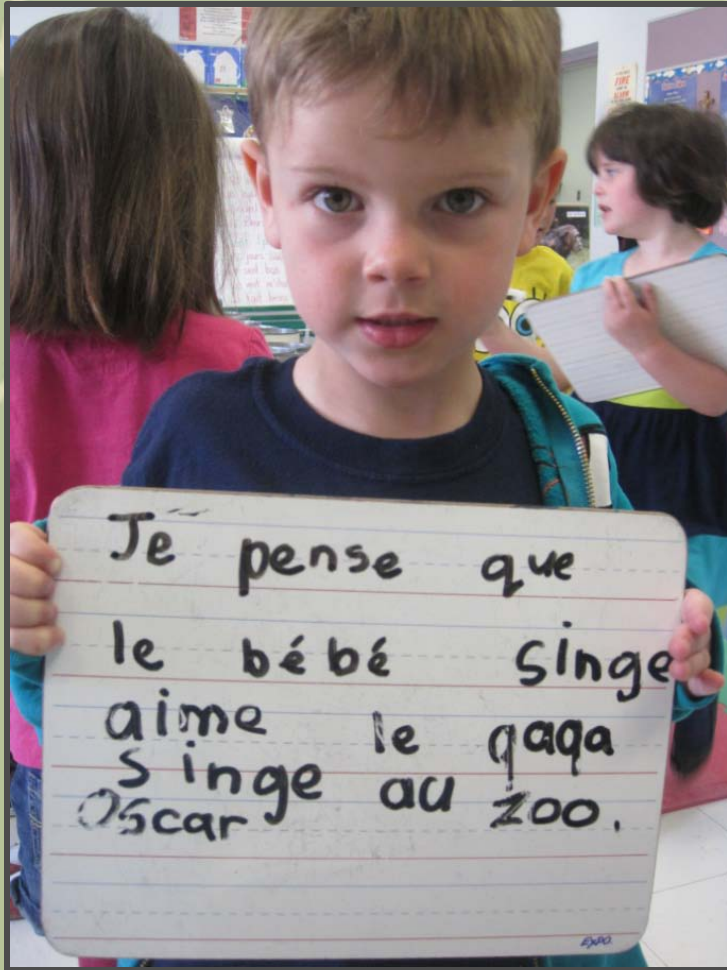 Je pense que
le bébé singe
aime le qaqa
singe au zoo.
Oscar
EXPO